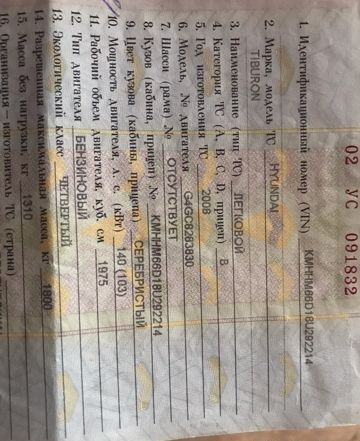 02 УС 091832
1. Идентификационный номер (VIN) KMHHM66D18U292214
2. Марка, модель ТС HYUNDAI
TIBURON
3. Наименование (тип ТС) ЛЕГКОВОЙ
4. Категория ТС (A, B, C, D, прицеп) B
5. Год изготовления ТС 2008
6. Модель, № двигателя G4GC8283830
7. Шасси (рама) № ОТСУТСТВУЕТ
8. Кузов (кабина, прицеп) № KMHHM66D18U292214
9. Цвет кузова (кабины, прицепа) СЕРЕБРИСТЫЙ
10. Мощность двигателя, л. с. (кВт) 140 (103)
11. Рабочий объем двигателя, куб. см 1975
12. Тип двигателя БЕНЗИНОВЫЙ
13. Экологический класс ЧЕТВЕРТЫЙ
14. Разрешенная максимальная масса, кг 1800
15. Масса без нагрузки, кг 1310
16. Организация – изготовитель ТС (страна)